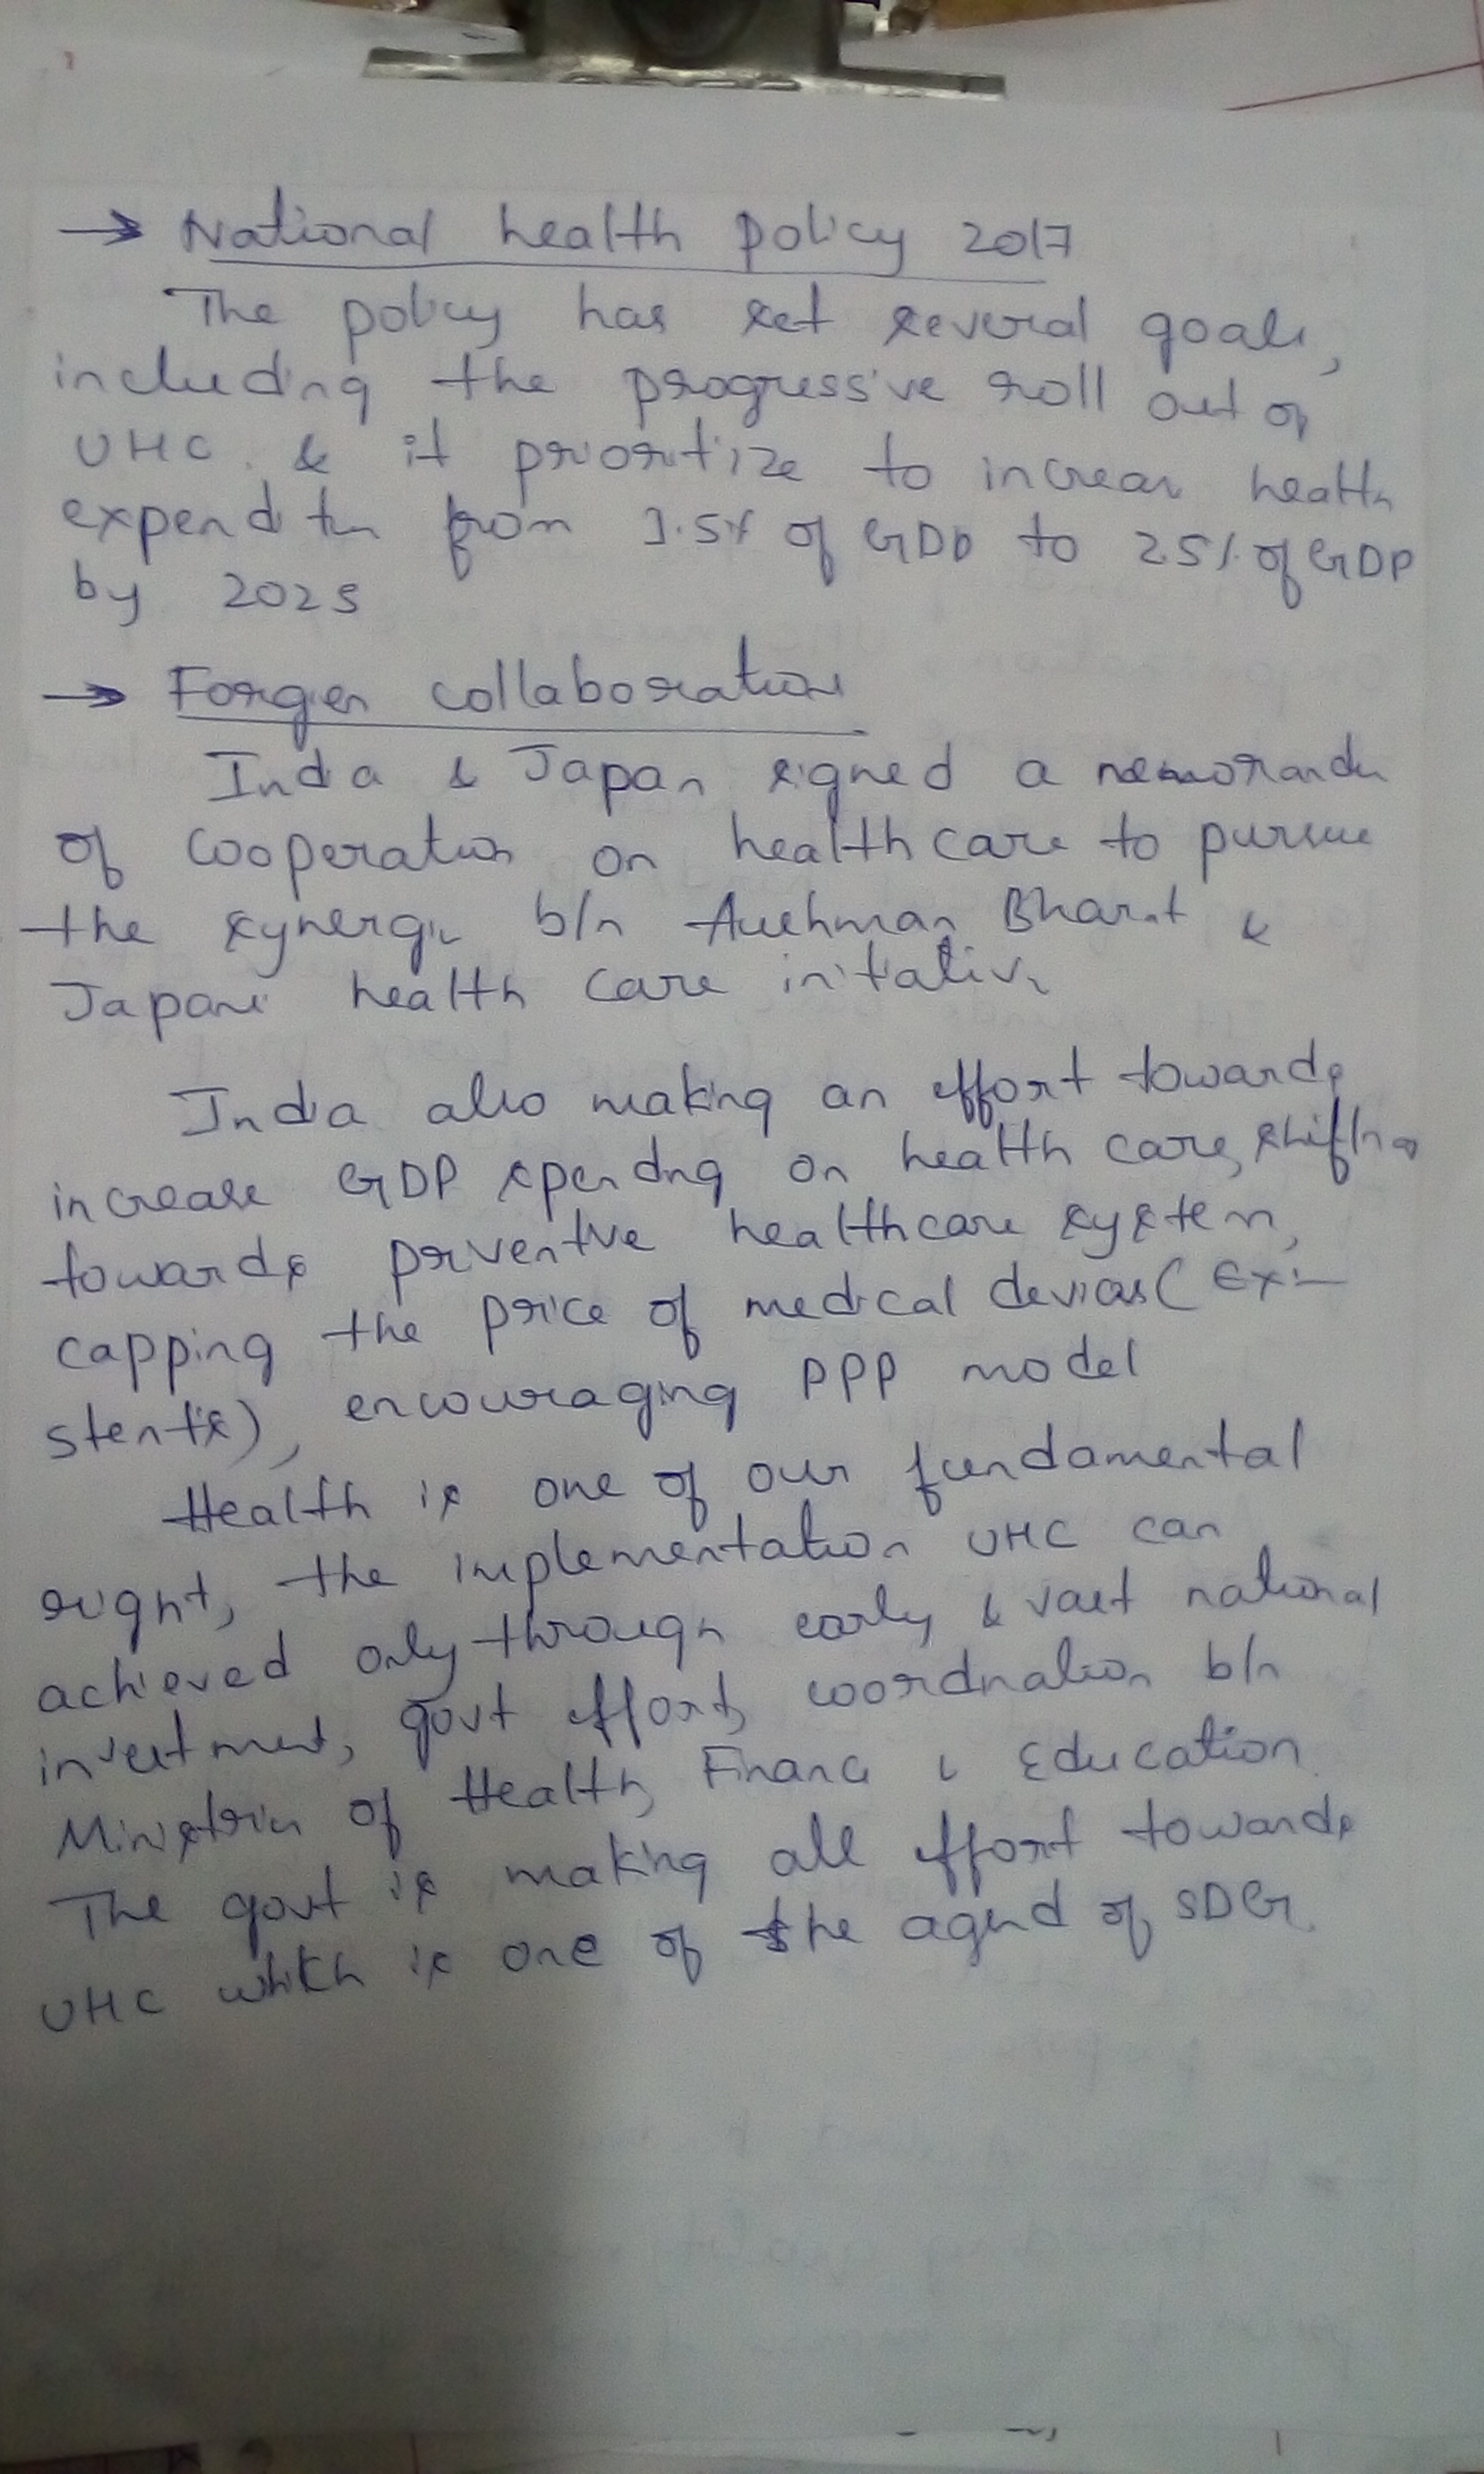 → National health policy 2017
The policy has set several goals,
including the progressive roll out of
UHC. & it prioritize to increase health
expenditure from 1.5% of GDP to 2.5% of GDP
by 2025
→ Forgien collaboration
India & Japan signed a memorandu
of cooperation on healthcare to pursue
the synergie b/n Aushman Bharat &
Japane health care initiative
India also making an effort towards
increase GDP spending on health care, shifting
towards priventive healthcare system,
capping the price of medical devices (Ex:-
stents), encouraging PPP model
Health is one of our fundamental
right, the implementation UHC can
achieved only through early & vast national
investment, govt effort, coordination b/n
Ministries of Health, Finance & Education.
The govt is making all effort towards
UHC which is one of the agend of SDG.